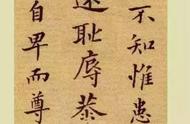 不知惟患
遠耻辱恭
自卑而尊